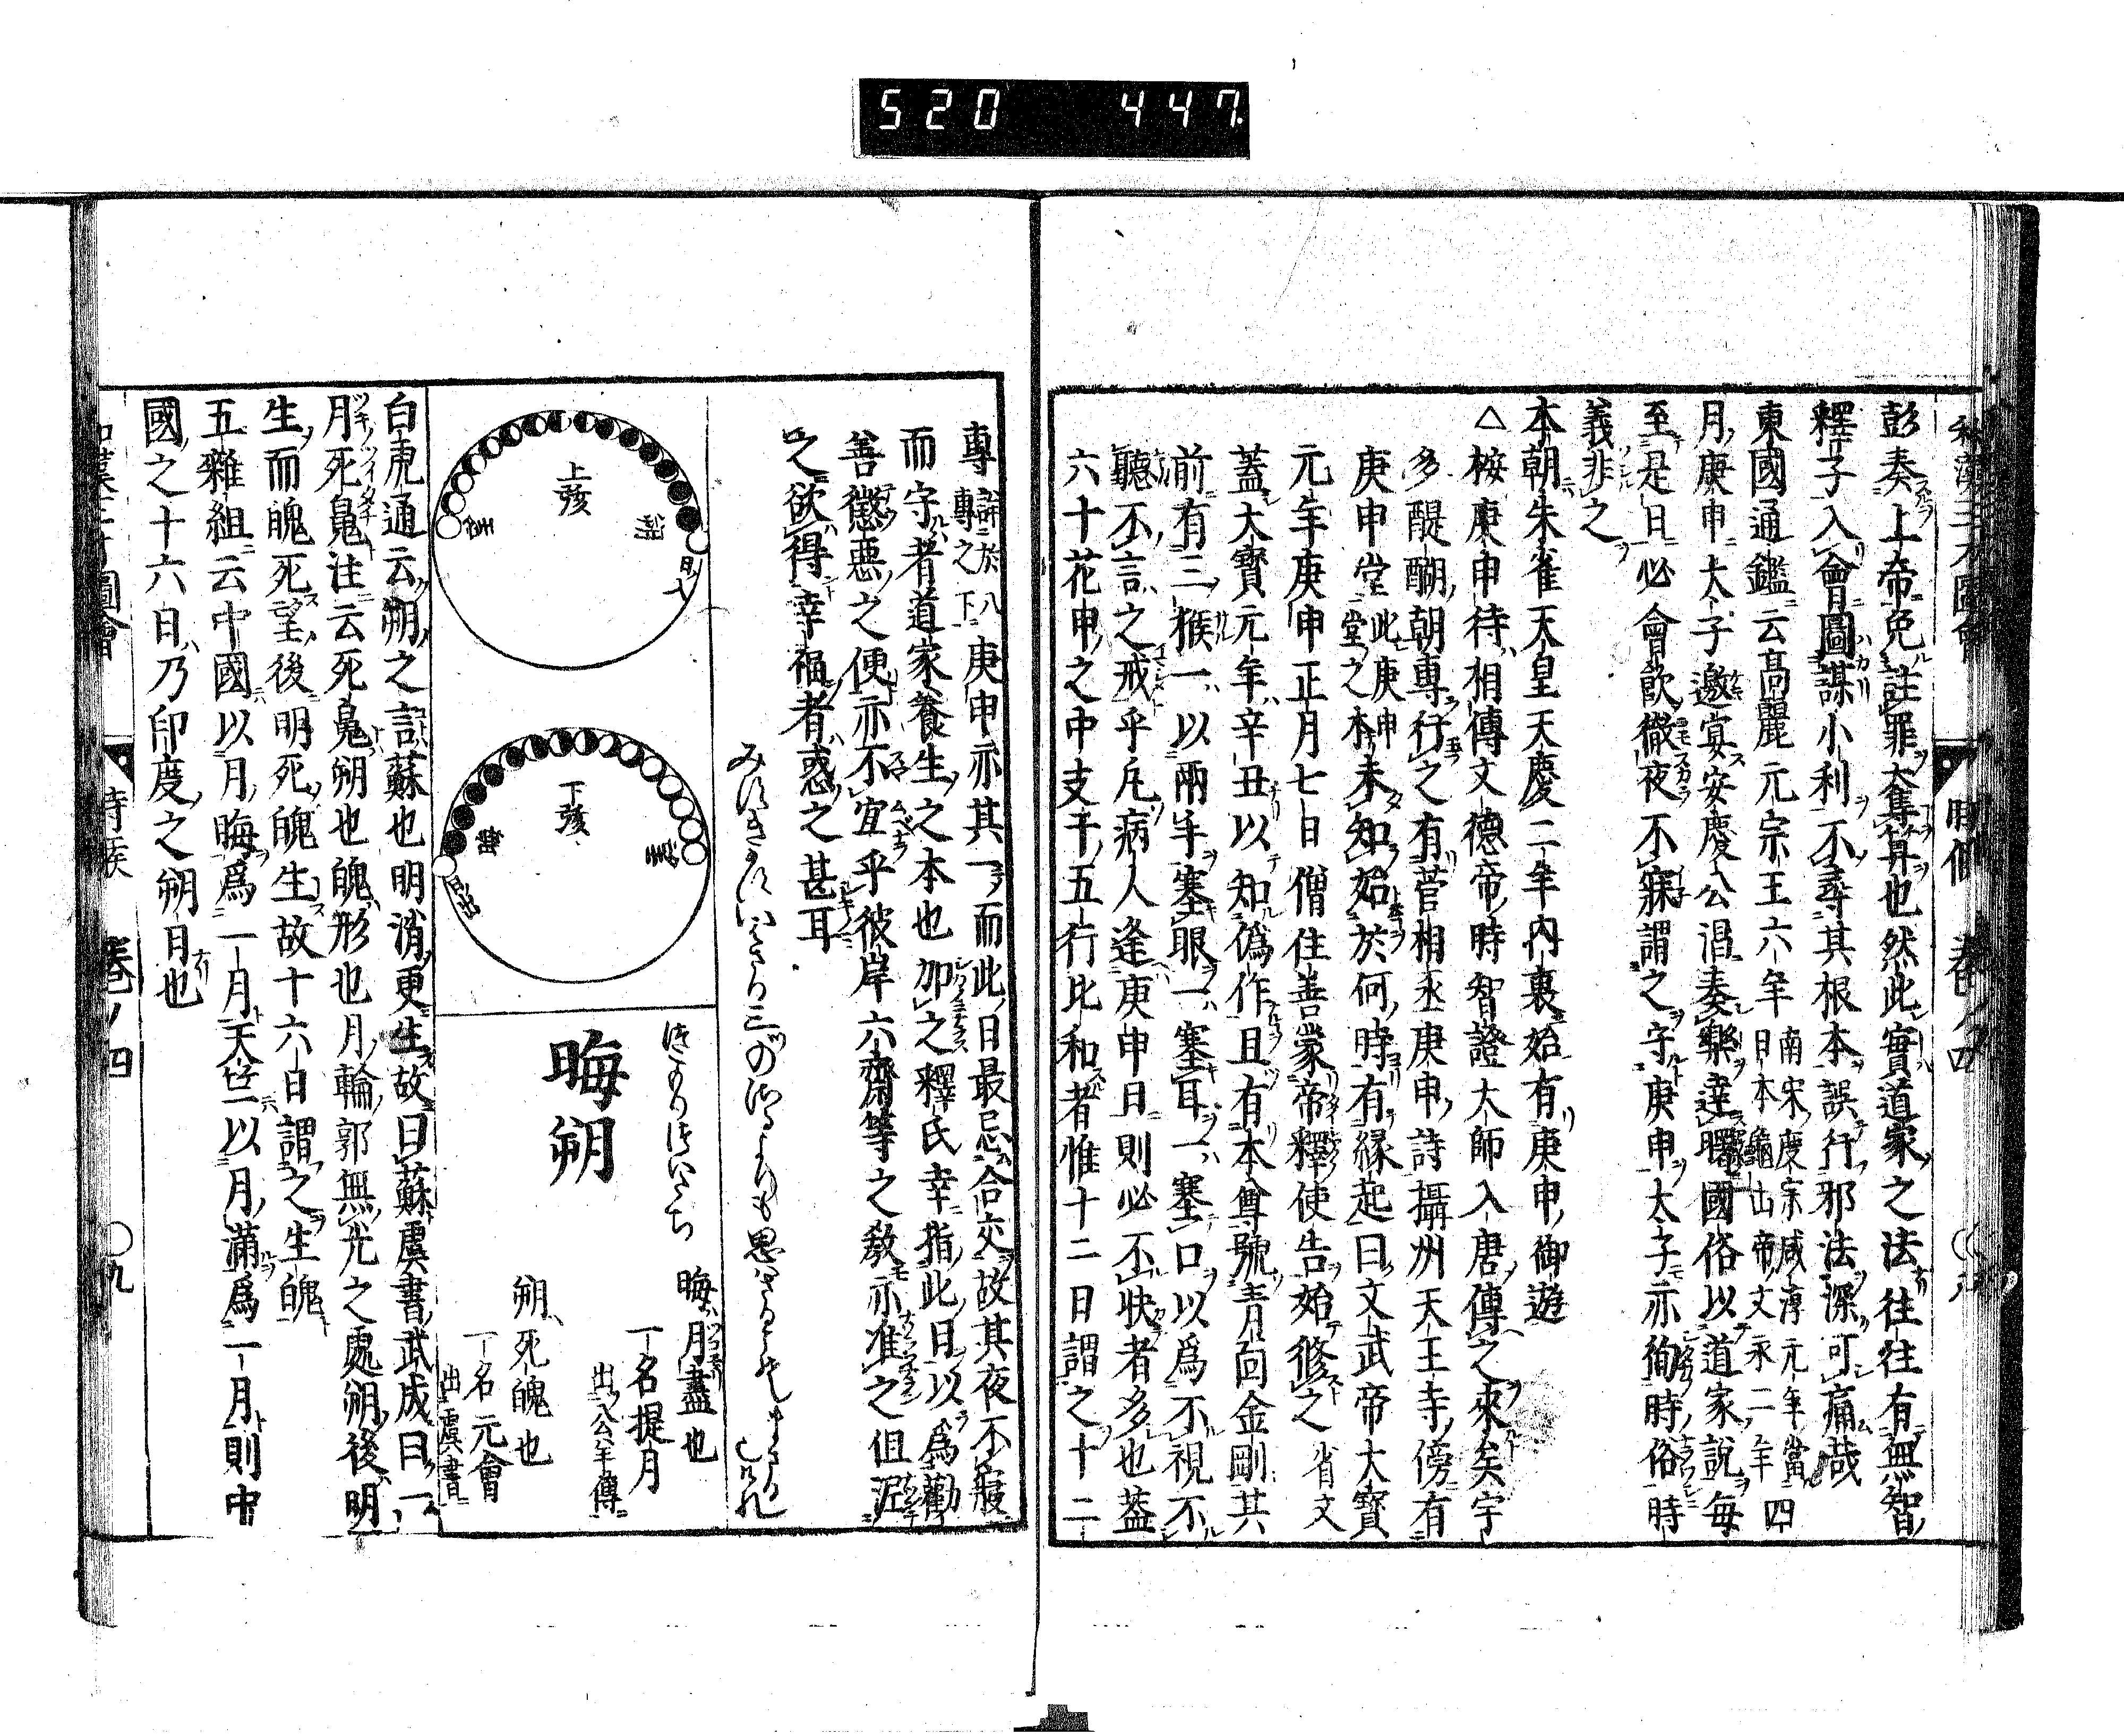 520 447.
和漢三才圖會 時候 卷ノ四
彭奏上帝免註罪奪算也然此實道家之法往往有無智
釋子入會圖謀小利不尋其根本誤行邪法深可痛哉
東國通鑑云高麗元宗王六年 南宋度宗咸淳元年當 日本龜山帝文永二年 四
月庚申太子邀宴安慶公淐奏樂達曙國俗以道家說每
至是日必會飮徹夜不寐謂之守庚申太子亦徇時俗時
義非之
本朝朱雀天皇天慶二年內裏始有庚申御遊
△桉庚申待相傳文德帝時智證大師入唐傳之來矣宇
多醍醐朝專行之有菅相丞庚申詩攝州天王寺傍有
庚申堂 此庚申 堂之本 未知始於何時有緣起曰文武帝大寶
元年庚申正月七日僧住善蒙帝釋使告始修之 省文
蓋大寶元年辛丑以知僞作且有本尊號青面金剛其
前有三猴一以兩手塞眼一塞耳一塞口以爲不視不
聽不言之戒乎凡病人逢庚申日則必不快者多也蓋
六十花甲之中支干五行比和者惟十二日謂之十二
專 詳於八 專之下 庚申亦其一而此日最忌合交故其夜不寢
而守者道家養生之本也加之釋氏幸指此日以爲勸
善懲惡之便亦不宜乎彼岸六齋等之敎亦准之但泥
之欲得幸福者惑之甚耳
上弦
下弦
晦朔
晦月盡也
一名提月
出公羊傳
朔死魄也
一名元會
出虞書
白虎通云朔之言蘇也明消更生故曰蘇虞書武成曰一
月死鬼注云死鬼朔也魄形也月輪郭無光之處朔後明
生而魄死望後明死魄生故十六日謂之生魄
五雜組云中國以月晦爲一月天竺以月滿爲一月則中
國之十六日乃印度之朔日也
和漢三才圖會 時候 卷ノ四 〇九